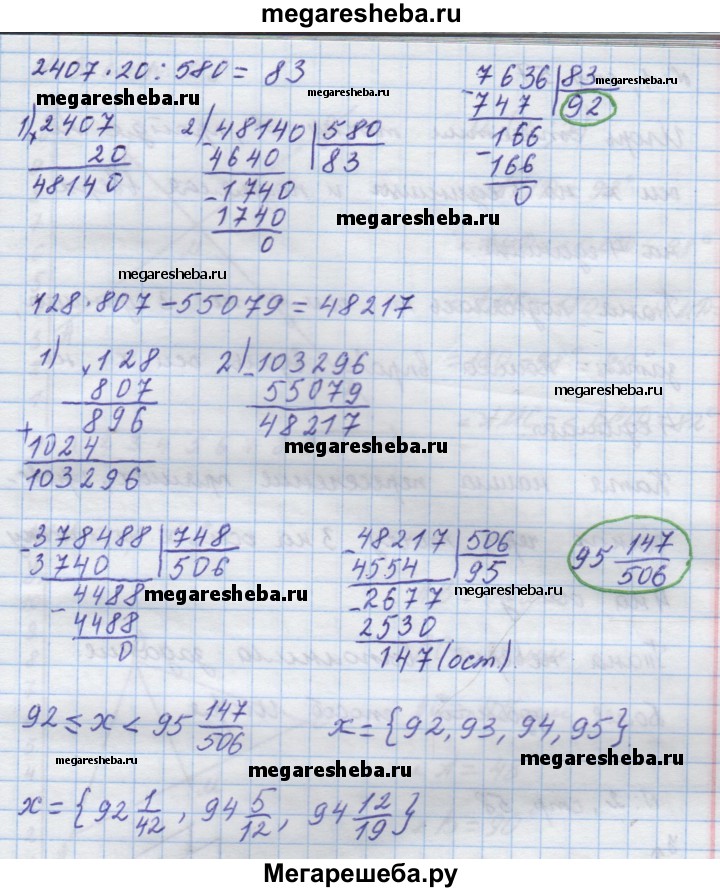 megaresheba.ru
2407·20:580= 83
7636 | 83
megaresheba.ru
megaresheba.ru
megaresheba.ru
747 | 92
1) 2407
2) 48140 | 580
166
20
4640 | 83
166
48140
1740
0
1740
megaresheba.ru
0
megaresheba.ru
128·807-55079=48217
1) 128
2) 103296
807
55079
megaresheba.ru
896
48217
+
1024
megaresheba.ru
103296
378488 | 748
48217 | 506
95 147/506
3740 | 506
4554 | 95
4488
megaresheba.ru
2677
megaresheba.ru
4488
2530
0
147(ост)
92 ≤ x < 95 147/506
x={92, 93, 94, 95}
megaresheba.ru
megaresheba.ru
megaresheba.ru
x={92 1/42, 94 5/12, 94 12/19}
Мегарешеба.ру